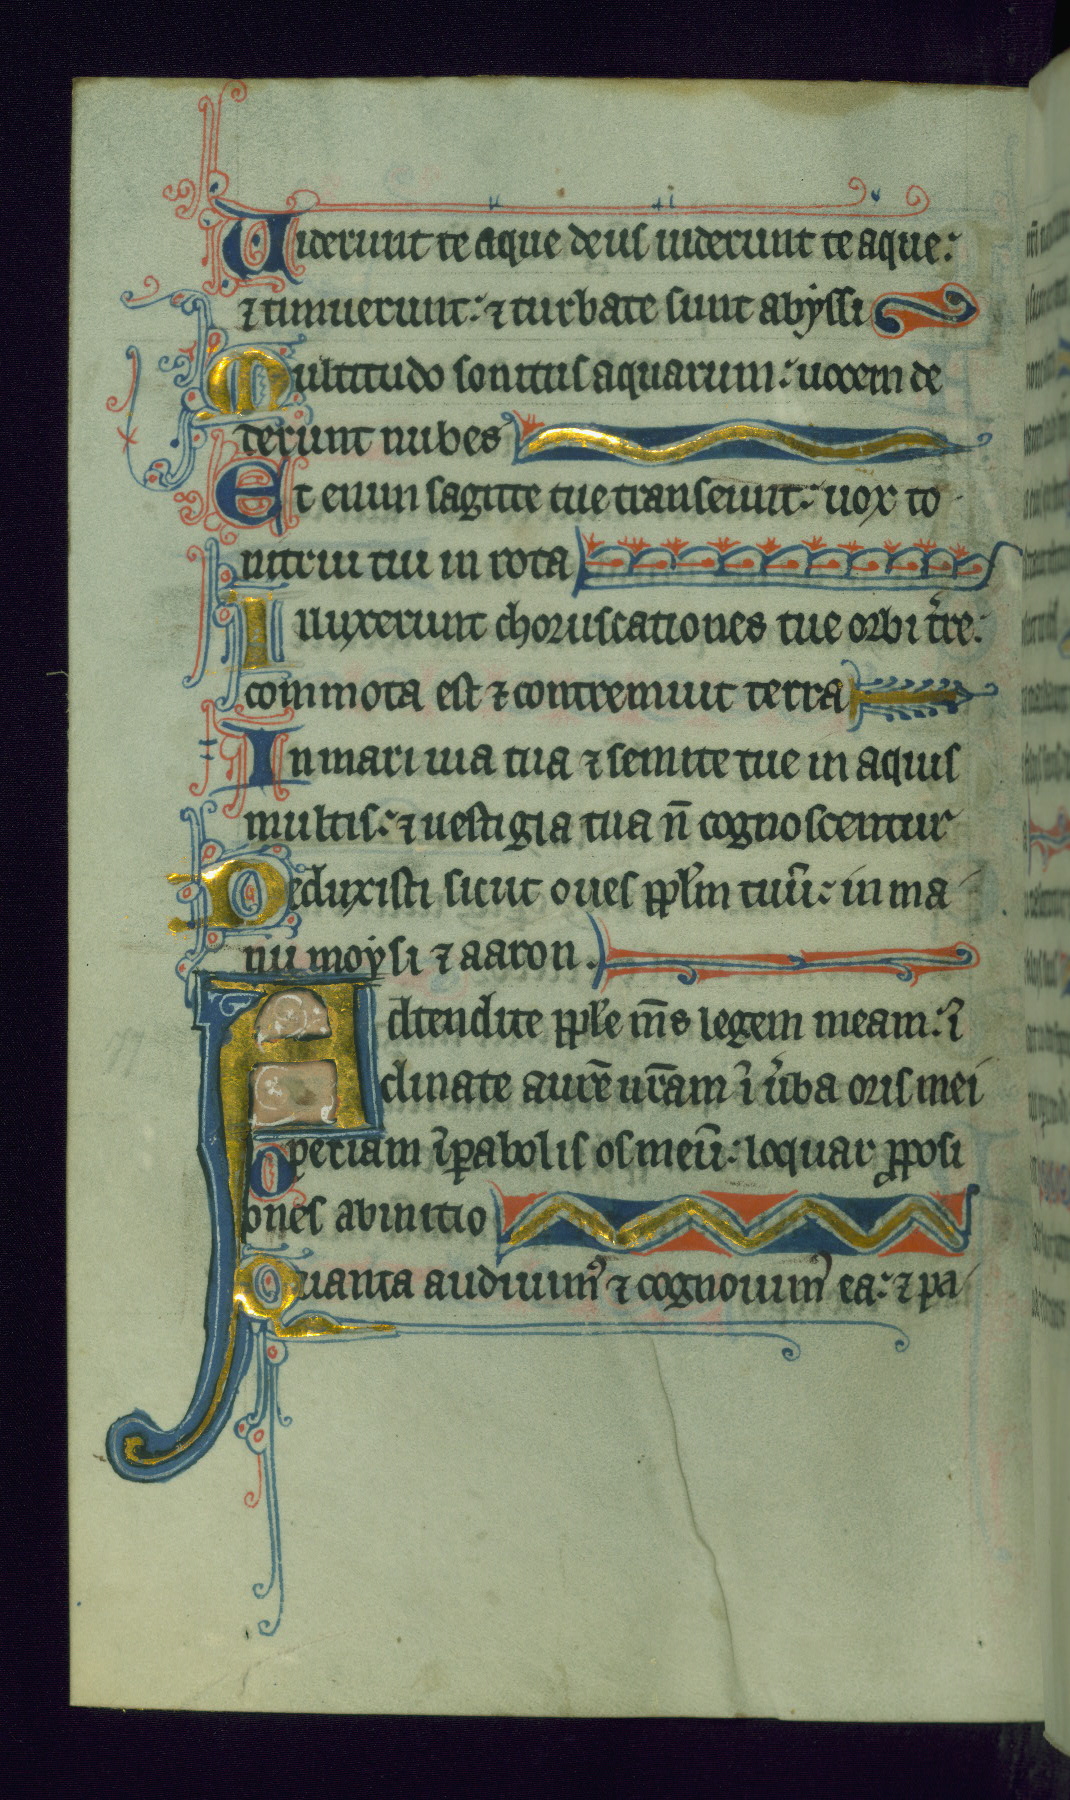 Uiderunt te aque deus uiderunt te aque:
⁊ timuerunt: ⁊ turbate sunt abyssi
Multitudo sonitus aquarum: uocem de
terunt nubes
Et enim sagitte tue transeunt: uox to
nitrui tui in rota
Inluxerunt choruscationes tue orbi t̄re:
commota est ⁊ contremuit terra
In mari uia tua ⁊ semite tue in aquis
multis: ⁊ uestigia tua n̄ cognoscentur
Deduxisti sicut oues ppl̄m tuū: in ma
nu moysi ⁊ aaron.
Adtendite pple m̄s legem meam: ī
clinate aurē ur̄am ī ūba oris mei
Operiam ī pabolis os meū: loquar pposi
ones ab initio
Quanta audiuim9 ⁊ cognouim9 ea: ⁊ pa